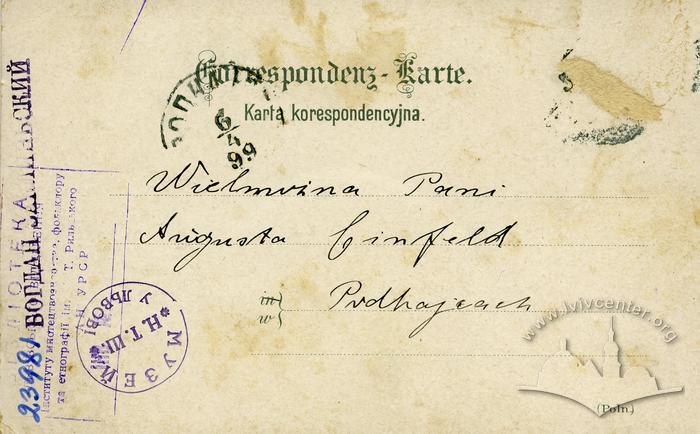 Correspondenz-Karte.
Karta korespondencyjna.
6/4
99
Wielmożna Pani
Augusta Einfeld
in
w
Podhajcach
(Poln.)
www.lvivcenter.org
БОГДАН
Інституту мистецтвознавства, фольклору
та етнографії ім. Т. Рильського
АН УРСР
23981
МУЗЕЙ
Н. Т. Ш.
У ЛЬВОВІ